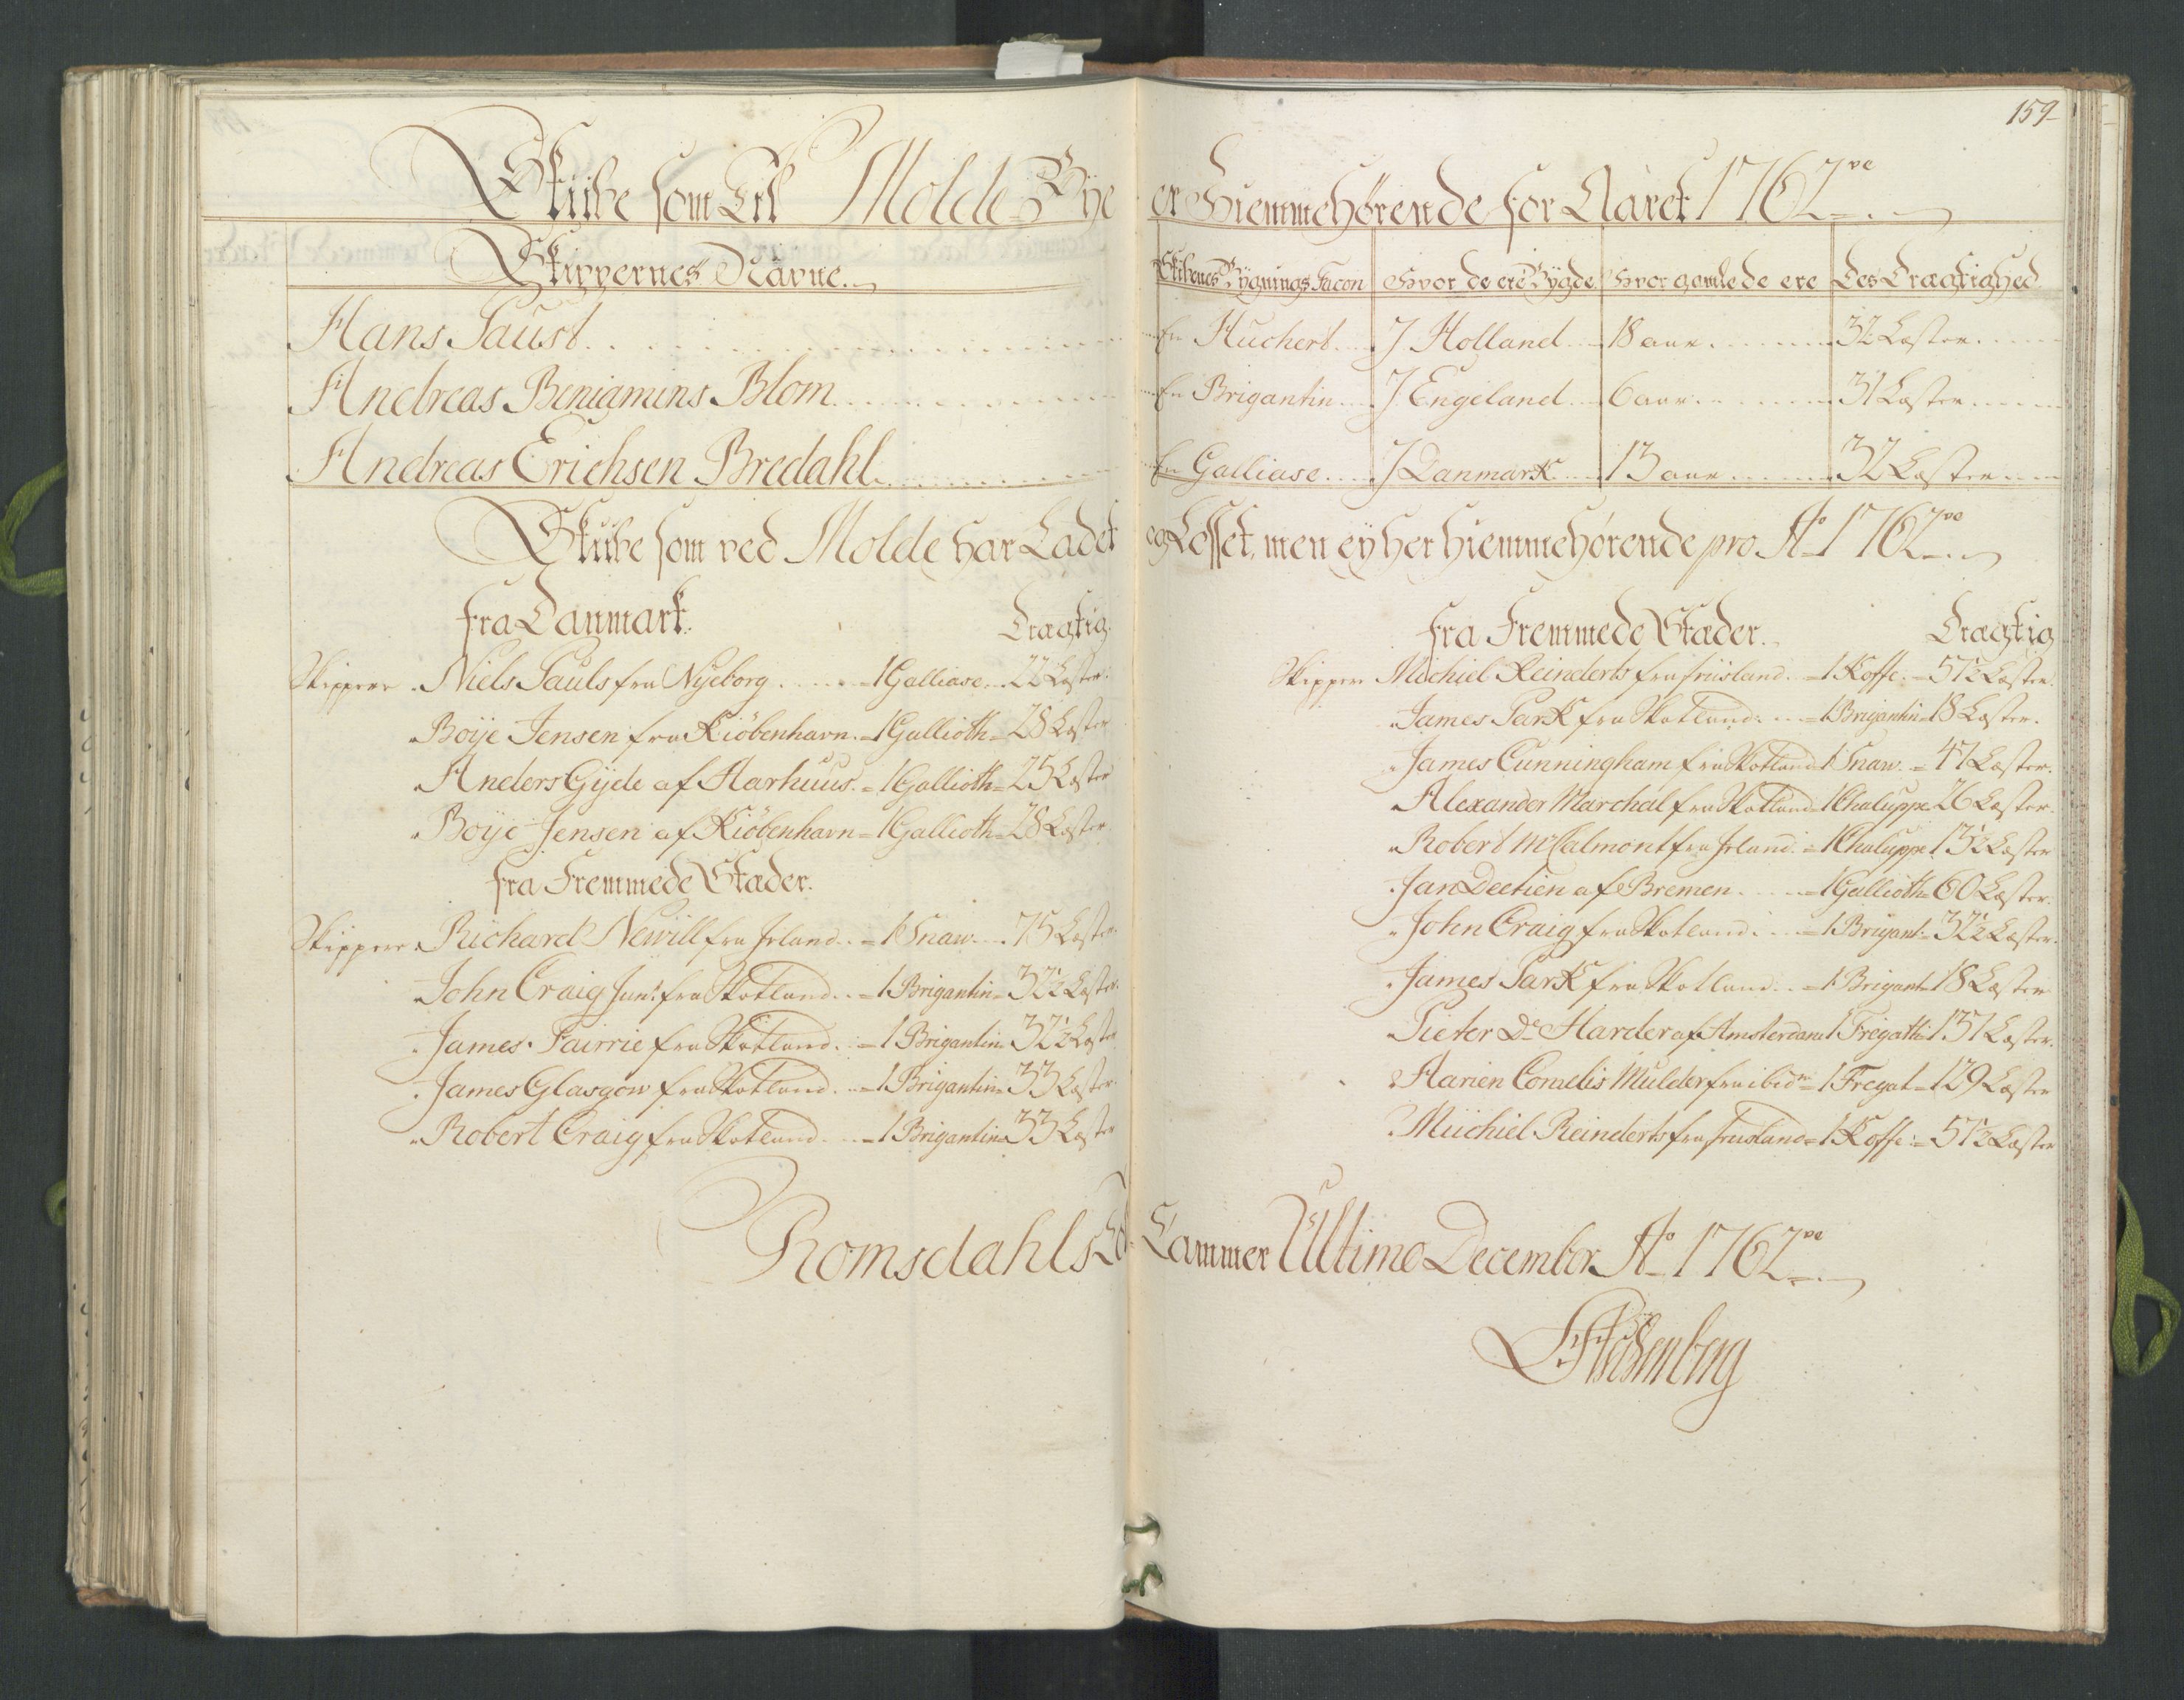 159
Skibe som til Molde Bye er Hiemmehörende for Aaret 1762ve
Skippernes Navne. Skibenes Bygnings Facon Hvor de ere Bygde Hvor gamle de ere Des Drægtighed
Hans Paust. En Huchert. J Holland 18 aar 32 Læster
Andreas Beniamins Blom En Brigantin J Engeland 6 aar 31 Læster
Andreas Erichsen Bredahl En Galliase J Danmark 13 aar 32 Læster
Skibe som ved Molde har Ladet og Losset, men ey her hiemmehørende pro Ao 1762ve
fra Danmark. Drægtig
Skippere Niels Pauls fra Nyeborg 1 Galliase 22 Læster
Boÿe Jensen fra Kiöbenhavn = 1 Gallioth = 28 Læster
Anders Gÿde af Aarhuus = 1 Gallioth = 25 Læster
Boÿe Jensen af Kiöbenhavn = 1 Gallioth = 28 Læster
fra Fremmede Stæder.
Skippere Richard Newill fra Jrland = 1 Snaw 75 Læster
John Craig Junr. fra Skotland = 1 Brigantin = 32½ Læster
James Fairrie fra Skotland = 1 Brigantin = 32½ Læster
James Glasgow fra Skotland = 1 Brigantin = 33 Læster
Robert Craig fra Skotland = 1 Brigantin = 33 Læster
fra Fremmede Stæder. Drægtig
Skippere Michiel Reinderts fra friisland = 1 Koffe = 57½ Læster
James Park fra Skotland = 1 Brigantin = 18 Læster.
James Cunningham fra Skotland 1 Snaw = 47 Læster.
Alexander Marchal fra Skotland 1 Chaluppe 26 Læster.
Robert McCalmont fra Jrland = 1 Chaluppe 13½ Læster
Jan Deetien af Bremen = 1 Gallioth = 60 Læster.
John Craig fra Skotland = 1 Brigant = 32½ Læster.
James Park fra Skotland = 1 Brigant = 18 Læster
Pieter De Harder af Amsterdam 1 Fregath = 137 Læster.
Harien Cornelis Mulder fra ibidm = 1 Fregat = 129 Læster
Miichiel Reinderts fra friisland = 1 Koffe = 57½ Læster
Romsdahls Told Cammer Ultimo December Ao 1762ve